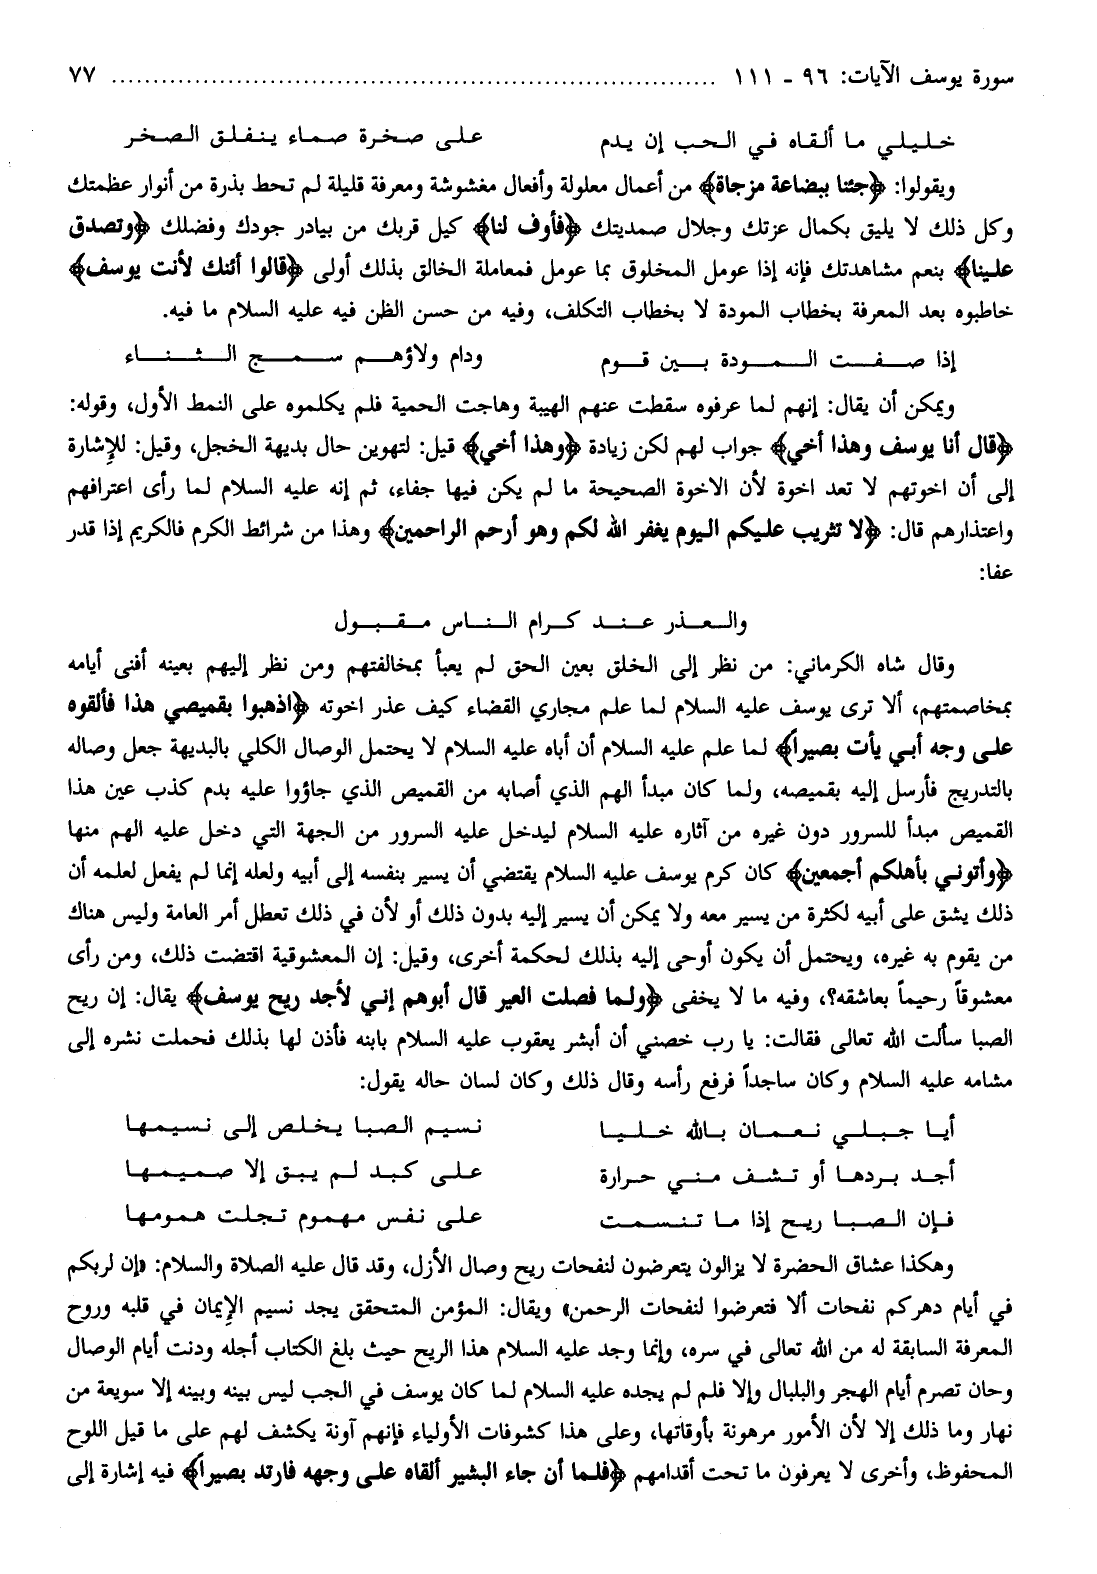 سورة يوسف الآيات: ٩٦ - ١١١ ........................................ ٧٧
خليلي ما ألقاه في الحب إن يدم على صخرة صماء ينفلق الصخر
ويقولوا: ﴿جئنا ببضاعة مزجاة﴾ من أعمال معلولة وأفعال مغشوشة ومعرفة قليلة لم تحط بذرة من أنوار عظمتك
وكل ذلك لا يليق بكمال عزتك وجلال صمديتك ﴿فأوف لنا﴾ كيل قربك من بيادر جودك وفضلك ﴿وتصدق
علينا﴾ بنعم مشاهدتك فإنه إذا عومل المخلوق بما عومل فمعاملة الخالق بذلك أولى ﴿قالوا أئنك لأنت يوسف﴾
خاطبوه بعد المعرفة بخطاب المودة لا بخطاب التكلف، وفيه من حسن الظن فيه عليه السلام ما فيه.
إذا صفت المودة بين قوم ودام ولاؤهم سمج الثناء
ويمكن أن يقال: إنهم لما عرفوه سقطت عنهم الهيبة وهاجت الحمية فلم يكلموه على النمط الأول، وقوله:
﴿قال أنا يوسف وهذا أخي﴾ جواب لهم لكن زيادة ﴿وهذا أخي﴾ قيل: لتهوين حال بديهة الخجل، وقيل: للإشارة
إلى أن اخوتهم لا تعد اخوة لأن الاخوة الصحيحة ما لم يكن فيها جفاء، ثم إنه عليه السلام لما رأى اعترافهم
واعتذارهم قال: ﴿لا تثريب عليكم اليوم يغفر الله لكم وهو أرحم الراحمين﴾ وهذا من شرائط الكرم فالكريم إذا قدر
عفا:
والعذر عند كرام الناس مقبول
وقال شاه الكرماني: من نظر إلى الخلق بعين الحق لم يعبأ بمخالفتهم ومن نظر إليهم بعينه أفنى أيامه
بمخاصمتهم، ألا ترى يوسف عليه السلام لما علم مجاري القضاء كيف عذر اخوته ﴿اذهبوا بقميصي هذا فألقوه
على وجه أبي يأت بصيراً﴾ لما علم عليه السلام أن أباه عليه السلام لا يحتمل الوصال الكلي بالبديهة جعل وصاله
بالتدريج فأرسل إليه بقميصه، ولما كان مبدأ الهم الذي أصابه من القميص الذي جاؤوا عليه بدم كذب عين هذا
القميص مبدأ للسرور دون غيره من آثاره عليه السلام ليدخل عليه السرور من الجهة التي دخل عليه الهم منها
﴿وأتوني بأهلكم أجمعين﴾ كان كرم يوسف عليه السلام يقتضي أن يسير بنفسه إلى أبيه ولعله إنما لم يفعل لعلمه أن
ذلك يشق على أبيه لكثرة من يسير معه ولا يمكن أن يسير إليه بدون ذلك أو لأن في ذلك تعطل أمر العامة وليس هناك
من يقوم به غيره، ويحتمل أن يكون أوحى إليه بذلك لحكمة أخرى، وقيل: إن المعشوقية اقتضت ذلك، ومن رأى
معشوقاً رحيماً بعاشقه؟، وفيه ما لا يخفى ﴿ولما فصلت العير قال أبوهم إني لأجد ريح يوسف﴾ يقال: إن ريح
الصبا سألت الله تعالى فقالت: يا رب خصني أن أبشر يعقوب عليه السلام بابنه فأذن لها بذلك فحملت نشره إلى
مشامه عليه السلام وكان ساجداً فرفع رأسه وقال ذلك وكان لسان حاله يقول:
أيا جبلي نعمان بالله خليا نسيم الصبا يخلص إلى نسيمها
أجد بردها أو تشف مني حرارة على كبد لم يبق إلا صميمها
فإن الصبا ريح إذا ما تنسمت على نفس مهموم تجلت همومها
وهكذا عشاق الحضرة لا يزالون يتعرضون لنفحات ريح وصال الأزل، وقد قال عليه الصلاة والسلام: «إن لربكم
في أيام دهركم نفحات ألا فتعرضوا لنفحات الرحمن» ويقال: المؤمن المتحقق يجد نسيم الإيمان في قلبه وروح
المعرفة السابقة له من الله تعالى في سره، وإنما وجد عليه السلام هذا الريح حيث بلغ الكتاب أجله ودنت أيام الوصال
وحان تصرم أيام الهجر والبلبال وإلا فلم لم يجده عليه السلام لما كان يوسف في الجب ليس بينه وبينه إلا سويعة من
نهار وما ذلك إلا لأن الأمور مرهونة بأوقاتها، وعلى هذا كشوفات الأولياء فإنهم آونة يكشف لهم على ما قيل اللوح
المحفوظ، وأخرى لا يعرفون ما تحت أقدامهم ﴿فلما أن جاء البشير ألقاه على وجهه فارتد بصيراً﴾ فيه إشارة إلى